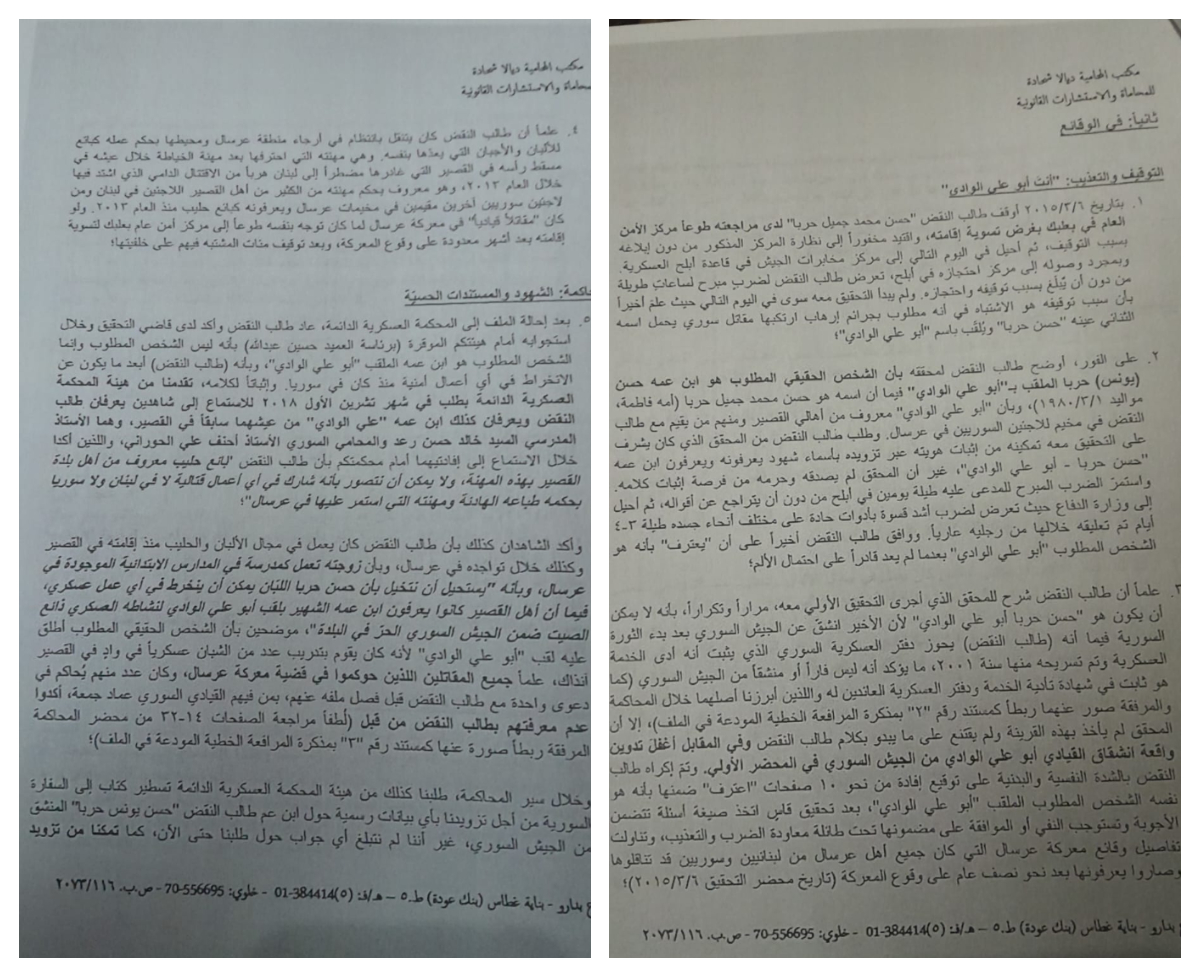 مكتب المحامية ديالا شحادة
للمحاماة والاستشارات القانونية
ثانياً: في الوقائع
التوقيف والتعذيب: "أنتَ أبو علي الوادي"
١. بتاريخ ٢٠١٥/٣/٦ أوقف طالب النقض "حسن محمد جميل حربا" لدى مراجعته طوعاً مركز الأمن
العام في بعلبك بغرض تسوية إقامته، واقتيد مخفوراً إلى نظارة المركز المذكور من دون إبلاغه
بسبب التوقيف، ثم أحيل في اليوم التالي إلى مركز مخابرات الجيش في قاعدة أبلح العسكرية.
وبمجرد وصوله إلى مركز احتجازه في أبلح، تعرض طالب النقض لضرب مبرح لساعات طويلة
من دون أن يُبلّغ بسبب توقيفه واحتجازه. ولم يبدأ التحقيق معه سوى في اليوم التالي حيث علم أخيراً
بأن سبب توقيفه هو الاشتباه في أنه مطلوب بجرائم إرهاب ارتكبها مقاتل سوري يحمل اسمه
الثنائي عينه "حسن حربا" ويُلقّب باسم "أبو علي الوادي"؛
٢. على الفور، أوضح طالب النقض لمحققه بأن الشخص الحقيقي المطلوب هو ابن عمه حسن
(يونس) حربا الملقب بـ"أبو علي الوادي" فيما أن اسمه هو حسن محمد جميل حربا (أمه فاطمة،
مواليد ١٩٨٠/٣/١)، وبأن "أبو علي الوادي" معروف من أهالي القصير ومنهم من يقيم مع طالب
النقض في مخيم للاجئين السوريين في عرسال. وطلب طالب النقض من المحقق الذي كان يشرف
على التحقيق معه تمكينه من إثبات هويته عبر تزويده بأسماء شهود يعرفونه ويعرفون ابن عمه
"حسن حربا - أبو علي الوادي"، غير أن المحقق لم يصدقه وحرمه من فرصة إثبات كلامه.
واستمرّ الضرب المبرح للمدعى عليه طيلة يومين في أبلح من دون أن يتراجع عن أقواله، ثم أحيل
إلى وزارة الدفاع حيث تعرض لضرب أشد قسوة بأدوات حادة على مختلف أنحاء جسده طيلة ٣-٤
أيام تم تعليقه خلالها من رجليه عارياً. ووافق طالب النقض أخيراً على أن "يعترف" بأنه هو
الشخص المطلوب "أبو علي الوادي" بعدما لم يعد قادراً على احتمال الألم؛
٣. علماً أن طالب النقض شرح للمحقق الذي أجرى التحقيق الأولي معه، مراراً وتكراراً، بأنه لا يمكن
أن يكون هو "حسن حربا أبو علي الوادي" لأن الأخير انشقّ عن الجيش السوري بعد بدء الثورة
السورية فيما أنه (طالب النقض) يحوز دفتر العسكرية السوري الذي يثبت أنه أدى الخدمة
العسكرية وتم تسريحه منها سنة ٢٠٠١، ما يؤكد أنه ليس فاراً أو منشقاً من الجيش السوري (كما
هو ثابت في شهادة تأدية الخدمة ودفتر العسكرية العائدين له واللذين أبرزنا أصلهما خلال المحاكمة
والمرفقة صور عنهما ربطاً كمستند رقم "٢" بمذكرة المرافعة الخطية المودعة في الملف)، إلا أن
المحقق لم يأخذ بهذه القرينة ولم يقتنع على ما يبدو بكلام طالب النقض وفي المقابل أغفل تدوين
واقعة انشقاق القيادي أبو علي الوادي من الجيش السوري في المحضر الأولي. وتمّ إكراه طالب
النقض بالشدة النفسية والبدنية على توقيع إفادة من نحو ١٠ صفحات "اعترف" ضمنها بأنه هو
نفسه الشخص المطلوب الملقب "أبو علي الوادي"، بعد تحقيق قاسٍ اتخذ صيغة أسئلة تتضمن
الأجوبة وتستوجب النفي أو الموافقة على مضمونها تحت طائلة معاودة الضرب والتعذيب، وتناولت
تفاصيل وقائع معركة عرسال التي كان جميع أهل عرسال من لبنانيين وسوريين قد تناقلوها
وصاروا يعرفونها بعد نحو نصف عام على وقوع المعركة (تاريخ محضر التحقيق ٢٠١٥/٣/٦)؛
ع بدارو - بناية غطاس (بنك عودة) ط.٥ – هـ/ف: (٥)384414-01 - خلوي: 556695-70 - ص.ب. ٢٠٧٣/١١٦
مكتب المحامية ديالا شحادة
للمحاماة والاستشارات القانونية
٤. علماً أن طالب النقض كان يتنقل بانتظام في أرجاء منطقة عرسال ومحيطها بحكم عمله كبائع
للألبان والأجبان التي يعدّها بنفسه. وهي مهنته التي احترفها بعد مهنة الخياطة خلال عيشه في
مسقط رأسه في القصير التي غادرها مضطراً إلى لبنان هرباً من الاقتتال الدامي الذي اشتد فيها
خلال العام ٢٠١٣، وهو معروف بحكم مهنته من الكثير من أهل القصير اللاجئين في لبنان ومن
لاجئين سوريين آخرين مقيمين في مخيمات عرسال ويعرفونه كبائع حليب منذ العام ٢٠١٣. ولو
كان "مقاتلاً قيادياً" في معركة عرسال لما كان توجه بنفسه طوعاً إلى مركز أمن عام بعلبك لتسوية
إقامته بعد أشهر معدودة على وقوع المعركة، وبعد توقيف مئات المشتبه فيهم على خلفيتها؛
حاكمة: الشهود والمستندات الحسيّة
٥. بعد إحالة الملف إلى المحكمة العسكرية الدائمة، عاد طالب النقض وأكد لدى قاضي التحقيق وخلال
استجوابه أمام هيئتكم الموقرة (برئاسة العميد حسين عبدالله) بأنه ليس الشخص المطلوب وإنما
الشخص المطلوب هو ابن عمه الملقب "أبو علي الوادي"، وبأنه (طالب النقض) أبعد ما يكون عن
الانخراط في أي أعمال أمنية منذ كان في سوريا. وإثباتاً لكلامه، تقدمنا من هيئة المحكمة
العسكرية الدائمة بطلب في شهر تشرين الأول ٢٠١٨ للاستماع إلى شاهدين يعرفان طالب
النقض ويعرفان كذلك ابن عمه "علي الوادي" من عيشهما سابقاً في القصير، وهما الأستاذ
المدرسي السيد خالد حسن رعد والمحامي السوري الأستاذ أحنف علي الحوراني، واللذين أكدا
خلال الاستماع إلى إفادتيهما أمام محكمتكم بأن طالب النقض "بائع حليب معروف من أهل بلدة
القصير بهذه المهنة، ولا يمكن أن نتصور بأنه شارك في أي أعمال قتالية لا في لبنان ولا سوريا
بحكمه طباعه الهادئة ومهنته التي استمر عليها في عرسال"؛
وأكد الشاهدان كذلك بأن طالب النقض كان يعمل في مجال الألبان والحليب منذ إقامته في القصير
وكذلك خلال تواجده في عرسال، وبأن زوجته تعمل كمدرسة في المدارس الابتدائية الموجودة في
عرسال، وبأنه "يستحيل أن نتخيل بأن حسن حربا اللبان يمكن أن ينخرط في أي عمل عسكري،
فيما أن أهل القصير كانوا يعرفون ابن عمه الشهير بلقب أبو علي الوادي لنشاطه العسكري ذائع
الصيت ضمن الجيش السوري الحرّ في البلدة"، موضحين بأن الشخص الحقيقي المطلوب أطلق
عليه لقب "أبو علي الوادي" لأنه كان يقوم بتدريب عدد من الشبان عسكرياً في وادٍ في القصير
آنذاك، علماً جميع المقاتلين اللذين حوكموا في قضية معركة عرسال، وكان عدد منهم يُحاكم في
دعوى واحدة مع طالب النقض قبل فصل ملفه عنهم، بمن فيهم القيادي السوري عماد جمعة، أكدوا
عدم معرفتهم بطالب النقض من قبل (لُطفاً مراجعة الصفحات ١٤-٣٢ من محضر المحاكمة
المرفقة ربطاً صورة عنها كمستند رقم "٣" بمذكرة المرافعة الخطية المودعة في الملف)؛
وخلال سير المحاكمة، طلبنا كذلك من هيئة المحكمة العسكرية الدائمة تسطير كتاب إلى السفارة
السورية من أجل تزويدنا بأي بيانات رسمية حول ابن عم طالب النقض "حسن يونس حربا" المنشق
من الجيش السوري، غير أننا لم نتبلغ أي جواب حول طلبنا حتى الآن، كما تمكنا من تزويد
ع بدارو - بناية غطاس (بنك عودة) ط.٥ – هـ/ف: (٥)384414-01 - خلوي: 556695-70 - ص.ب. ٢٠٧٣/١١٦